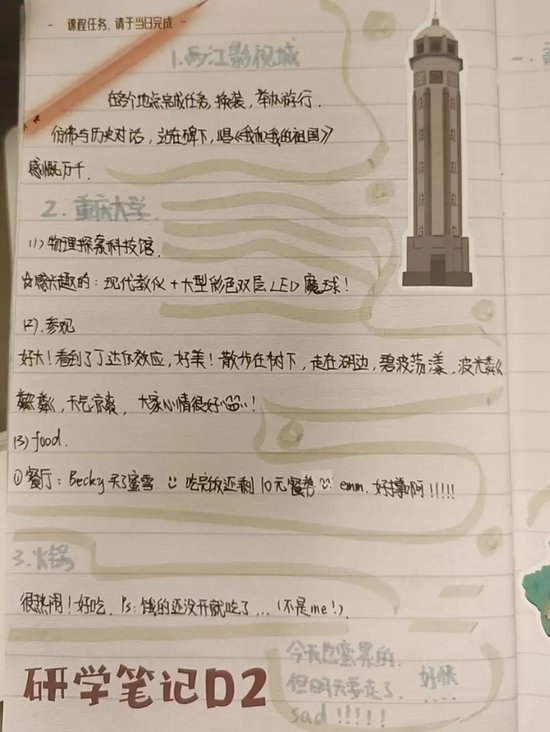 - 课程任务,请于当日完成 -
1.两江影视城
在各个地点完成任务,换装,举办游行.
仿佛与历史对话,站在碑下,唱《我和我的祖国》
感慨万千.
2.重庆大学.
(1)物理探索科技馆.
☆感兴趣的:现代教仪+大型彩色双层LED魔球!
(2).参观
好大!看到了丁达尔效应,好美!散步在树下,走在湖边,碧波荡漾,波光粼
粼,天气凉爽,大家心情很好!
(3)food.
①餐厅:Becky买了蜜雪 吃完饭还剩10元餐券 emm.好撑啊!!!!!
3.火锅
很热闹!好吃.Ps:饿的还没开就吃了...(不是me!).
研学笔记D2
今天也蛮累的.
但明天要走了.好快
....
sad!!!!!